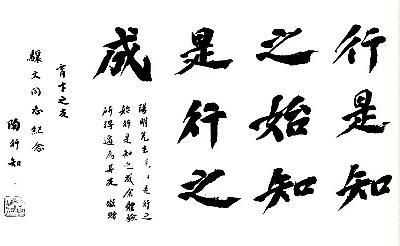 行是知
之始知
是行之
成
陽明先生 是行之
始行是知之成余 驗
所得適為其反 敬贈
育才之友
文同志紀念
陶行知